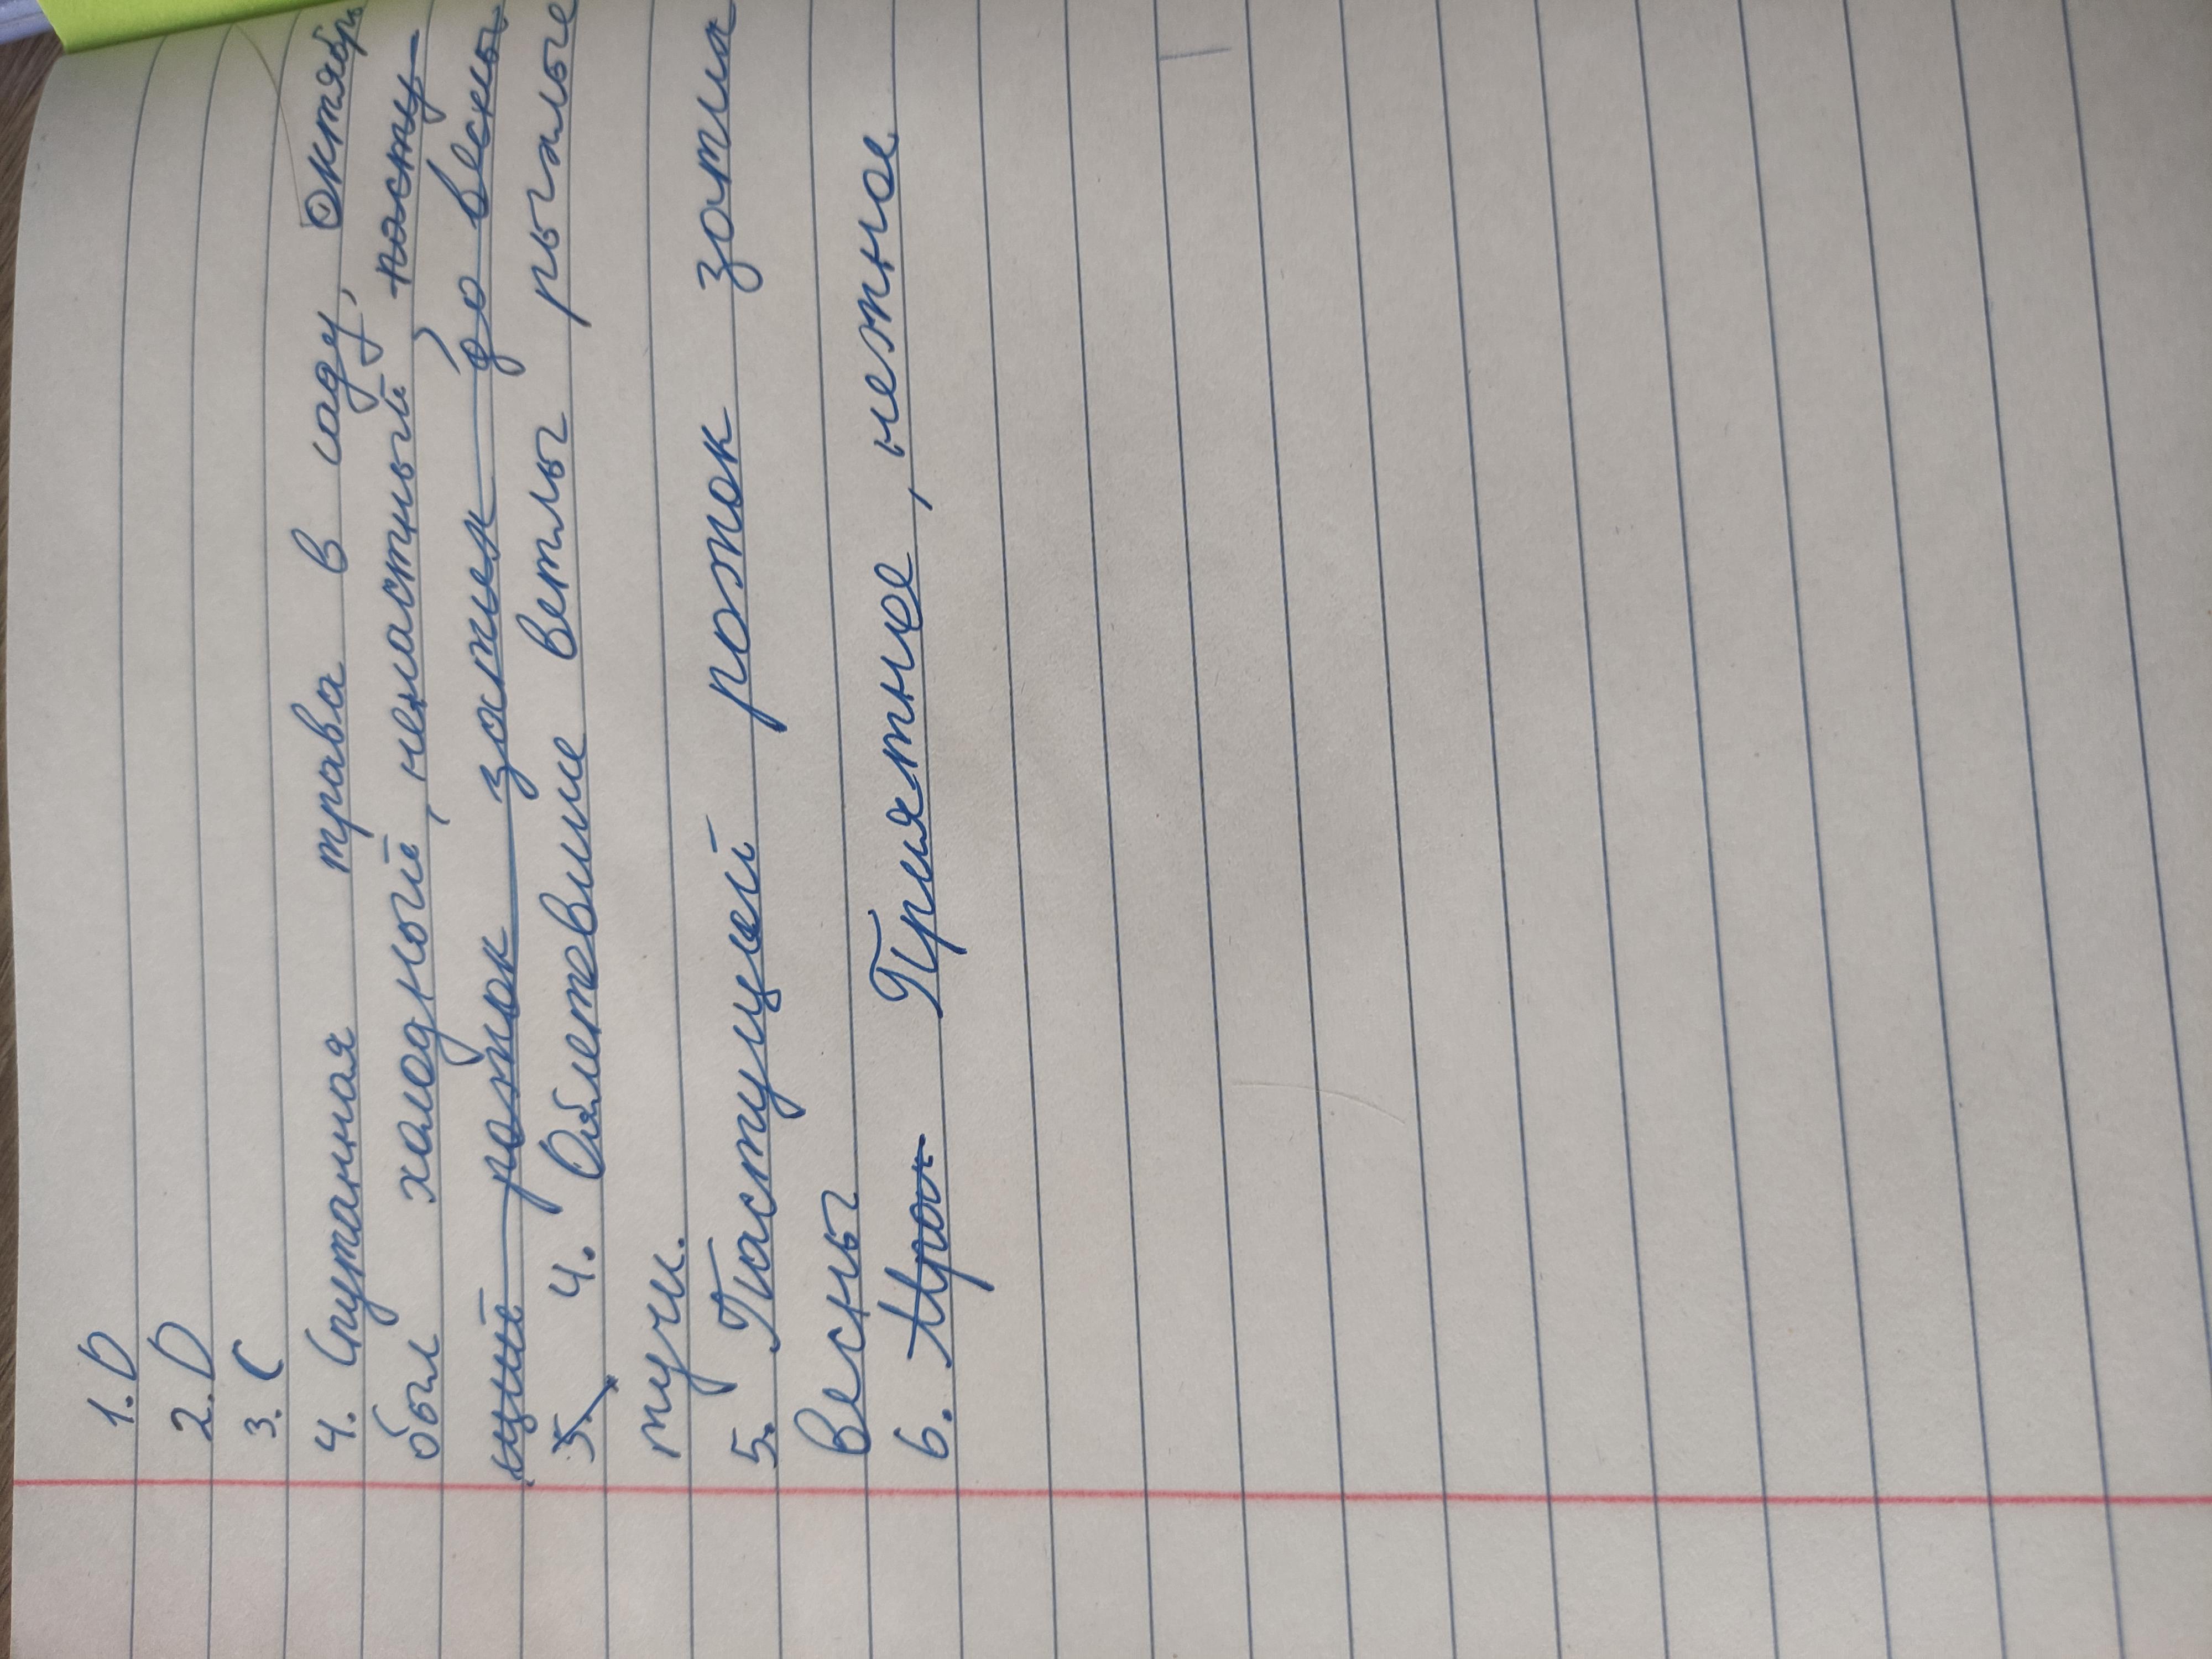 1. D
2. D
3. C
4. Спутанная трава в саду, Октябрь
был холодный, ненастный, пасту-
ший рожок затих до весны
3. 4. Облетевшие ветлы рыгалые
тучи.
5. Пастуший рожок затих
весны
6. Мрач Приятное, нежное